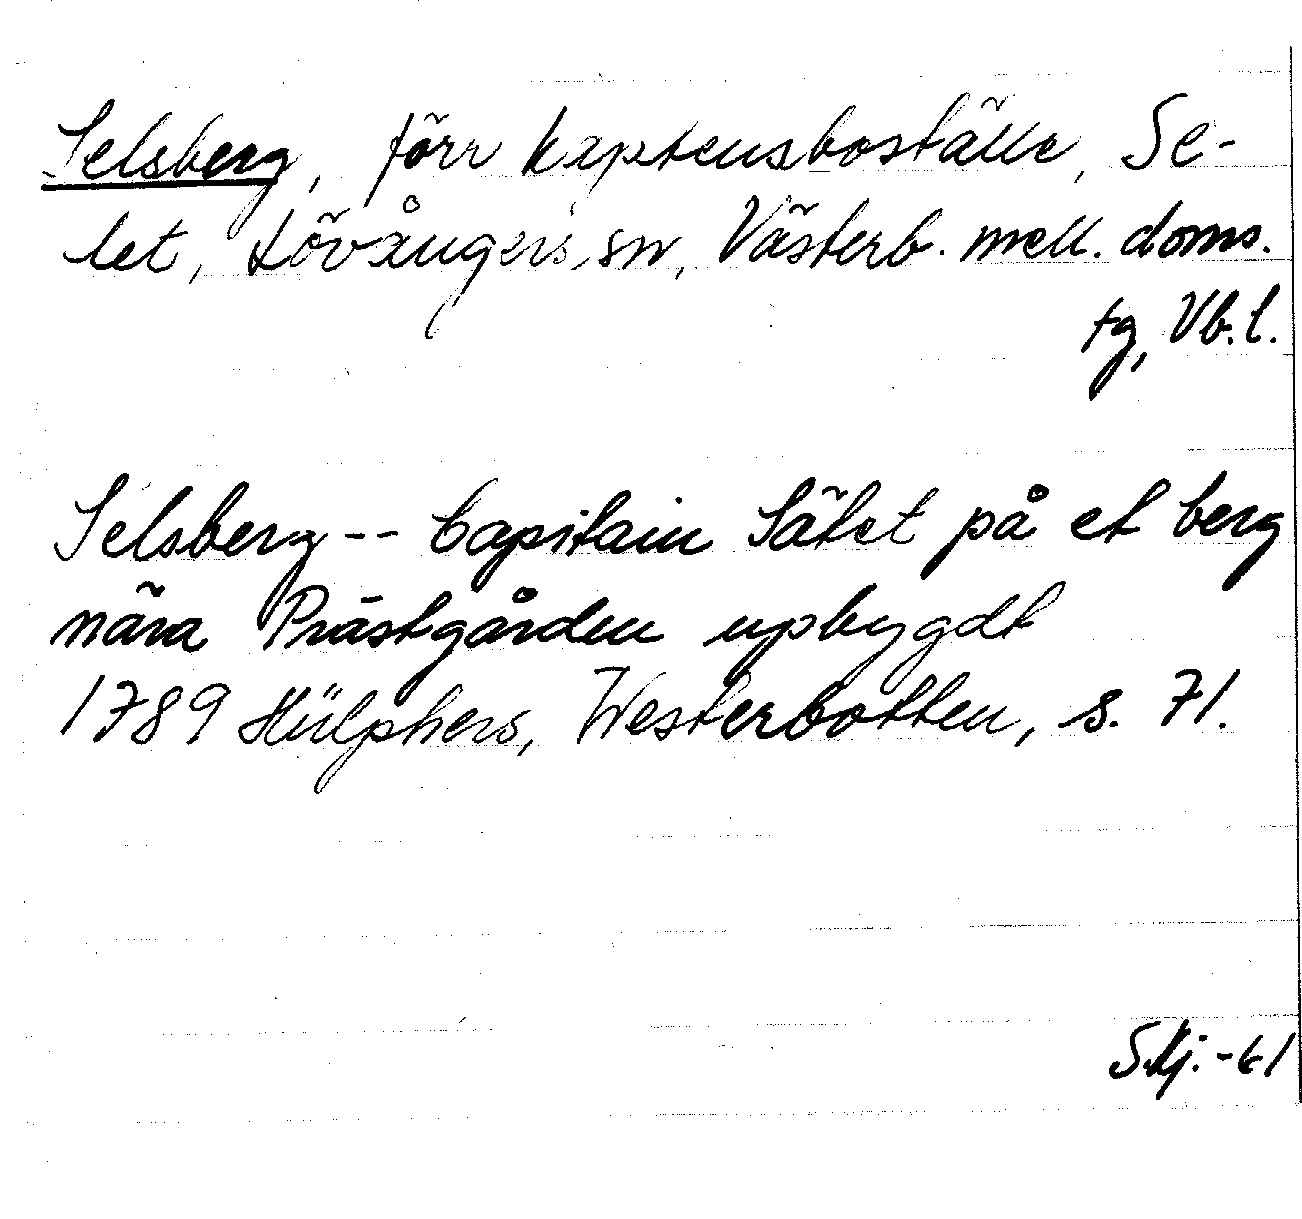 Selsberg, förr kaptensboställe, Se-
let, Lövångers sn, Västerb. mell. doms.
tg, Vb. l.
Selsberg -- Capitain Sätet på et berg
nära Prästgården upbygdt
1789 Hülphers, Westerbotten, s. 71.
SHj. -61